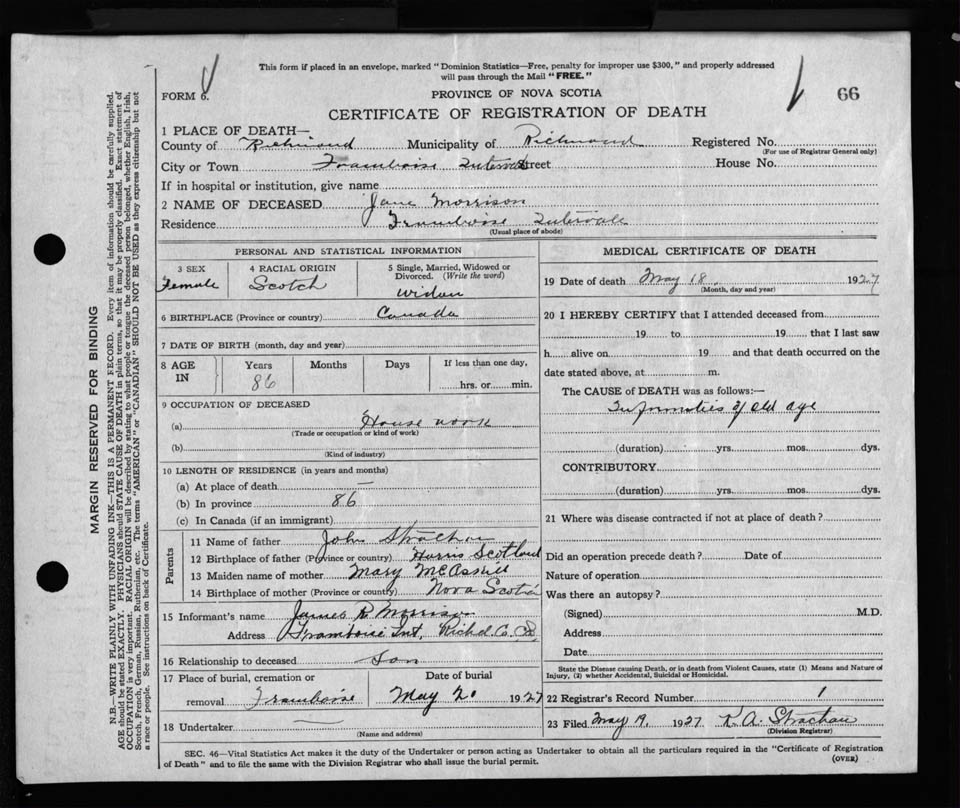 This form if placed in an envelope, marked "Dominion Statistics—Free, penalty for improper use $300," and properly addressed
will pass through the Mail "FREE."
FORM 6.
PROVINCE OF NOVA SCOTIA
66
CERTIFICATE OF REGISTRATION OF DEATH
1 PLACE OF DEATH—
County of Richmond Municipality of Richmond Registered No.
(For use of Registrar General only)
City or Town Framboise Intervale Street House No.
If in hospital or institution, give name
2 NAME OF DECEASED Jane Morrison
Residence Framboise Intervale
(Usual place of abode)
PERSONAL AND STATISTICAL INFORMATION
3 SEX 4 RACIAL ORIGIN 5 Single, Married, Widowed or
Divorced. (Write the word)
Female Scotch widow
6 BIRTHPLACE (Province or country) Canada
7 DATE OF BIRTH (month, day and year)
8 AGE IN Years Months Days If less than one day,
86 hrs. or min.
9 OCCUPATION OF DECEASED
(a) House work
(Trade or occupation or kind of work)
(b)
(Kind of industry)
10 LENGTH OF RESIDENCE (in years and months)
(a) At place of death —
(b) In province 86
(c) In Canada (if an immigrant)
Parents
11 Name of father John Strachan
12 Birthplace of father (Province or country) Harris Scotland
13 Maiden name of mother Mary McAskill
14 Birthplace of mother (Province or country) Nova Scotia
15 Informant's name James R Morrison
Address Framboise Int, Richd. Co. CB
16 Relationship to deceased Son
17 Place of burial, cremation or Date of burial
removal Framboise May 20 1927
18 Undertaker —
(Name and address)
MEDICAL CERTIFICATE OF DEATH
19 Date of death May 18 1927
(Month, day and year)
20 I HEREBY CERTIFY that I attended deceased from
19 to 19 that I last saw
h alive on 19 and that death occurred on the
date stated above, at m.
The CAUSE of DEATH was as follows:—
Infirmities of old age
(duration) yrs. mos. dys.
CONTRIBUTORY
(duration) yrs. mos. dys.
21 Where was disease contracted if not at place of death?
Did an operation precede death? Date of
Nature of operation
Was there an autopsy?
(Signed) M.D.
Address
Date
State the Disease causing Death, or in death from Violent Causes, state (1) Means and Nature of
Injury, (2) whether Accidental, Suicidal or Homicidal.
22 Registrar's Record Number 1
23 Filed May 19, 1927 K. A. Strachan
(Division Registrar)
SEC. 46—Vital Statistics Act makes it the duty of the Undertaker or person acting as Undertaker to obtain all the particulars required in the "Certificate of Registration
of Death" and to file the same with the Division Registrar who shall issue the burial permit.
(OVER)
MARGIN RESERVED FOR BINDING
N.B.—WRITE PLAINLY WITH UNFADING INK—THIS IS A PERMANENT RECORD. Every item of information should be carefully supplied.
AGE should be stated EXACTLY. PHYSICIANS should STATE CAUSE OF DEATH in plain terms, so that it may be properly classified. Exact statement of
OCCUPATION is very important. RACIAL ORIGIN will be described by stating to what people or tongue the deceased person belonged, whether English, Irish,
Scotch, French, German, Russian, Ruthenian, etc. The terms "AMERICAN" or "CANADIAN" SHOULD NOT BE USED as they express citizenship but not
a race or people. See instructions on back of Certificate.